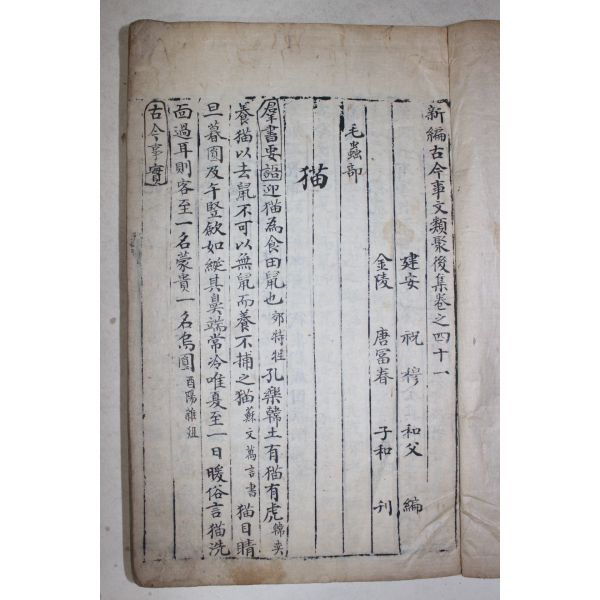 新編古今事文類聚後集卷之四十一
建安 祝穆 和父 編
金陵 唐冨春 子和 刊
毛蟲部
猫
羣書要語迎猫為食田鼠也郊特牲孔樂韓土有猫有虎韓奕
養猫以去鼠不可以無鼠而養不捕之猫蘇文萬言書猫目睛
旦暮圓及午豎歛如綖其鼻端常冷唯夏至一日暖俗言猫洗
面過耳則客至一名蒙貴一名烏圓酉陽雜俎
古今事實